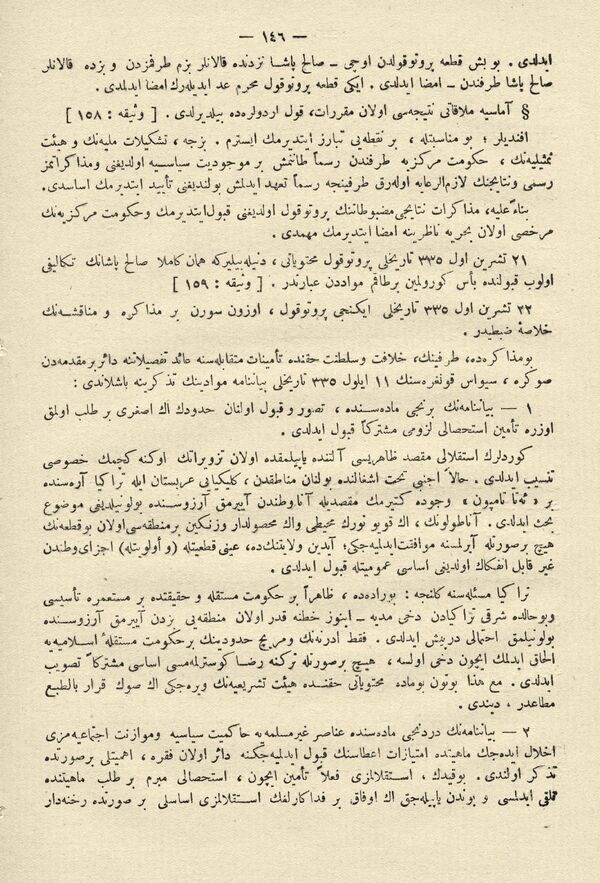 — ١٤٦ —
ایدلدی . بو بش قطعه پروتوقولدن اوچی ـ صالح پاشا نزدنده قالانلر بزم طرفمزدن و بزده قالانلر
صالح پاشا طرفندن ـ امضا ایدلدی . ایکی قطعه پروتوقول محرم عد ایدیله‌رك امضا ایدلمدی .
§ آماسیه ملاقاتی نتیجه‌سی اولان مقررات، قول اردولره‌ده بیلدیرلدی . [ وثیقه : ١٥٨ ]
افندیلر ؛ بو مناسبتله ، بر نقطه‌یی تبارز ایتدیرمك ایسترم . بزجه ، تشکیلات ملیه‌نك و هیئت
تمثیلیه‌نك ، حکومت مرکزیه طرفندن رسماً طانمش بر موجودیت سیاسیه اولدیغنی و مذاکراتمز
رسمی و نتایجنك لازم‌الرعایه اوله‌رق طرفینجه رسماً تعهد ایدلمش بولندیغنی تأیید ایتدیرمك اساسدی .
بناءً علیه، مذاکرات نتایجی مضبوطاتنك پروتوقول اولدیغنی قبول ایتدیرمك و حکومت مرکزیه‌نك
مرخصی اولان بحریه ناظرینه امضا ایتدیرمك مهمدی .
٢١ تشرین اول ٣٣٥ تاریخلی پروتوقول محتویاتی ، دنیله‌بیلیرکه همان کاملا صالح پاشانك تکالیفی
اولوب قبولنده بأس کورولمین برطاقم مواددن عبارتدر . [ وثیقه : ١٥٩ ]
٢٢ تشرین اول ٣٣٥ تاریخلی ایکنجی پروتوقول ، اوزون سورن بر مذاکره و مناقشه‌نك
خلاصۀ ضبطیدر .
بو مذاکره‌ده، طرفینك، خلافت و سلطنت حقنده تأمینات متقابله‌سنه عائد تفصیلاتنه دائر بر مقدمه‌دن
صوکره ، سیواس قونغره‌سنك ١١ ایلول ٣٣٥ تاریخلی بیاننامه موادینك تذکرینه باشلاندی :
١ — بیاننامه‌نك برنجی ماده‌سنده ، تصور و قبول اولنان حدودك اك اصغری بر طلب اولمق
اوزره تأمین استحصالی لزومی مشترکاً قبول ایدلدی .
کوردلرك استقلالی مقصد ظاهریسی آلتنده یاپیلمقده اولان تزویراتك اوکنه کچمك خصوصی
تنسیب ایدلدی . حالاً اجنبی تحت اشغالنده بولنان مناطقدن ، کلیکیایی عربستان ایله ترا کیا آره‌سنده
بر « ئه‌تا تامپون » وجوده کتیرمك مقصدیله آناوطندن آییرمق آرزوسنده بولونیلدیغی موضوع
بحث ایدلدی . آناطولونك ، اك قویو تورك محیطی واك محصولدار وزنکین برمنطقه‌سی اولان بوقطعه‌نك
هیچ برصورتله آیرلمسنه موافقت ایدلمیه‌جکی؛ آیدین ولایتنك‌ده، عینی قطعیتله (و أولویتله) اجزای وطندن
غیر قابل انفکاك اولدیغی اساسی عمومیتله قبول ایدلدی .
ترا کیا مسئله‌سنه کلنجه : بوراده‌ده ، ظاهراً بر حکومت مستقله و حقیقتده بر مستعمره تأسیسی
وبوحالده شرقی ترا کیادن دخی مدیه ـ اینوز خطنه قدر اولان منطقه‌یی بزدن آییرمق آرزوسنده
بولونیلمق احتمالی درپیش ایدلدی . فقط ادرنه‌نك ومریچ حدودینك برحکومت مستقلۀ اسلامیه‌یه
الحاق ایدلمك ایچون دخی اولسه ، هیچ برصورتله ترکنه رضا کوسترلمه‌مسی اساسی مشترکاً تصویب
ایدلدی . مع هذا بوتون بوماده محتویاتی حقنده هیئت تشریعیه‌نك ویره‌جکی اك صوك قرار بالطبع
مطاعدر ، دینلدی .
٢ — بیاننامه‌نك دردنجی ماده‌سنده عناصر غیرمسلمه‌یه حاکمیت سیاسیه و موازنت اجتماعیه‌مزی
اخلال ایده‌جك ماهیتده امتیازات اعطاسنك قبول ایدلمیه‌جکنه دائر اولان فقره ، اهمیتلی برصورتده
تذکر اولندی . بوقیدك ، استقلالمزی فعلاً تأمین ایچون ، استحصالی مبرم بر طلب ماهیتنده
تلقی ایدلمسی و بوندن یاپیله‌جق اك اوفاق بر فداکارلغك استقلالمزی اساسلی بر صورتده رخنه‌دار